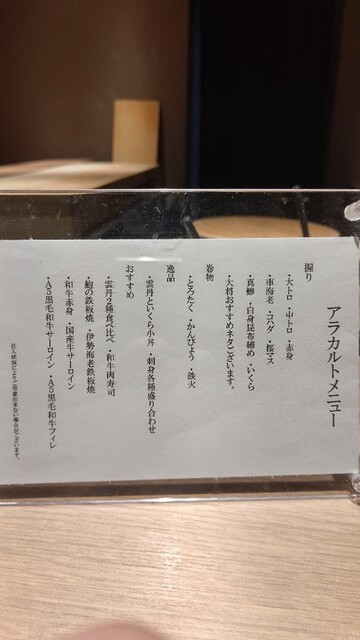 アラカルトメニュー
握り
・大トロ ・中トロ ・赤身
・車海老 ・コハダ ・桜マス
・真鯵 ・白身昆布締め ・いくら
・大将おすすめネタございます。
巻物
・とろたく ・かんぴょう ・鉄火
逸品
・雲丹といくら小丼 ・刺身各種盛り合わせ
おすすめ
・雲丹2種食べ比べ ・和牛肉寿司
・鮑の鉄板焼 ・伊勢海老鉄板焼
・和牛赤身 ・国産牛サーロイン
・A5黒毛和牛サーロイン ・A5黒毛和牛フィレ
仕入状況によりご用意出来ない場合がございます。